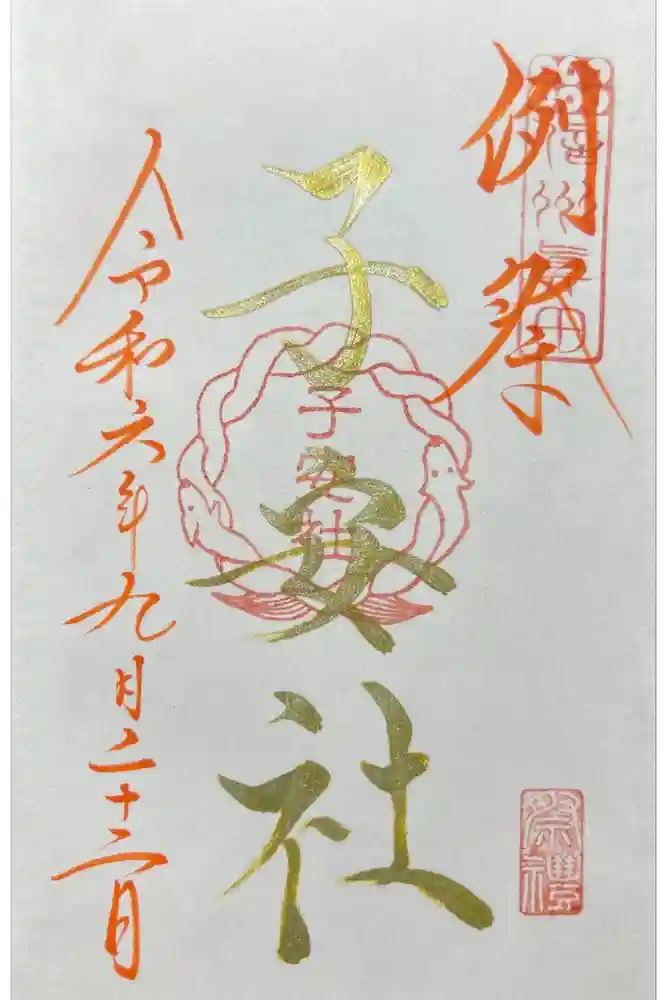 例祭
信州眞田
子安社
子安社
祭禮
令和六年九月二十二日